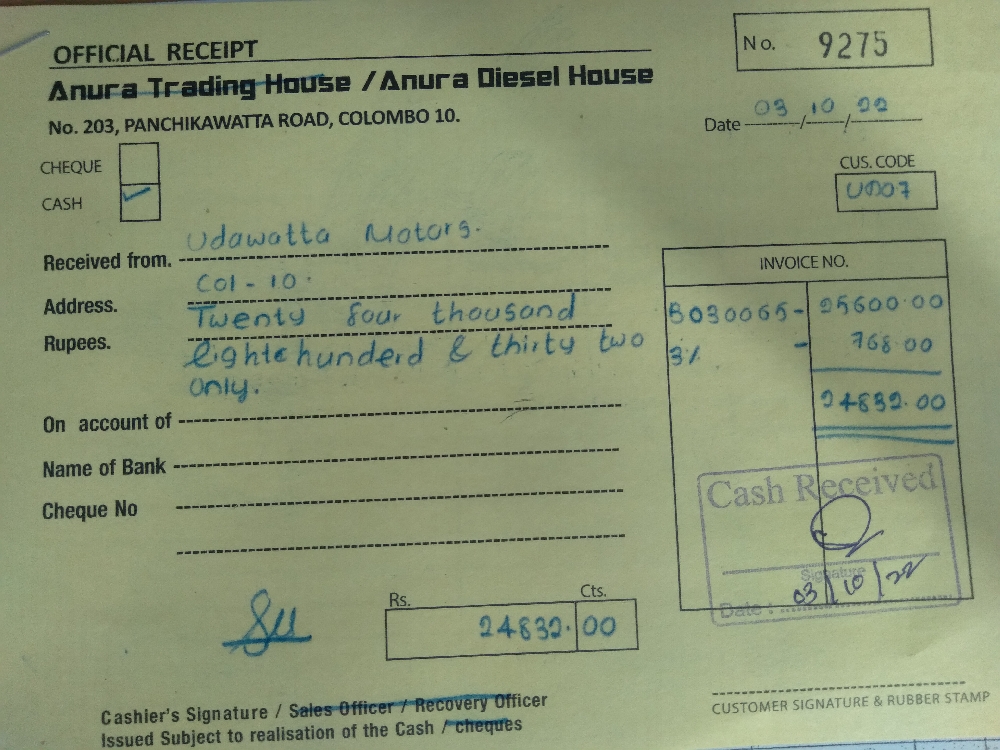 OFFICIAL RECEIPT
No. 9275
Anura Trading House / Anura Diesel House
No. 203, PANCHIKAWATTA ROAD, COLOMBO 10.
Date 03/10/22
CHEQUE
CASH ✓
CUS. CODE
UD07
Received from. Udawatta Motors.
Address. Col - 10.
Rupees. Twenty four thousand
eighte hunderd & thirty two
only.
INVOICE NO.
5030065- 25600.00
3% - 768.00
24832.00
On account of
Name of Bank
Cheque No
Cash Received
Signature
Date : 03/10/22
Rs. Cts.
24832. 00
Cashier's Signature / Sales Officer / Recovery Officer
Issued Subject to realisation of the Cash / cheques
CUSTOMER SIGNATURE & RUBBER STAMP